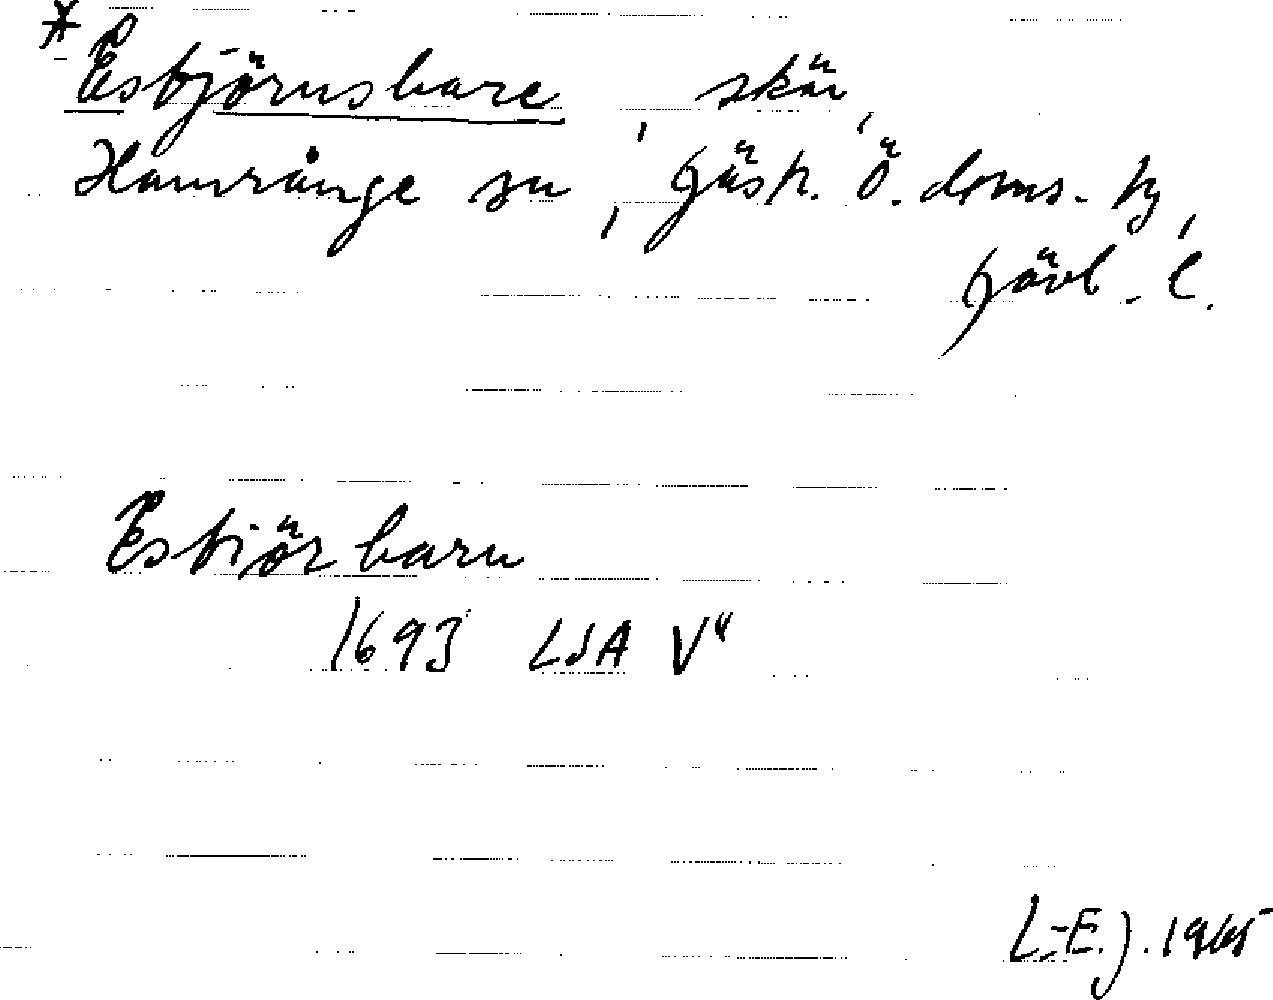 * Esbjörnsbare, skär,
Hamrånge sn, Gästr. Ö. doms. tg,
Gävl. l.
Esbiör baru
1693 LSA V"
L.-E. J. 1965